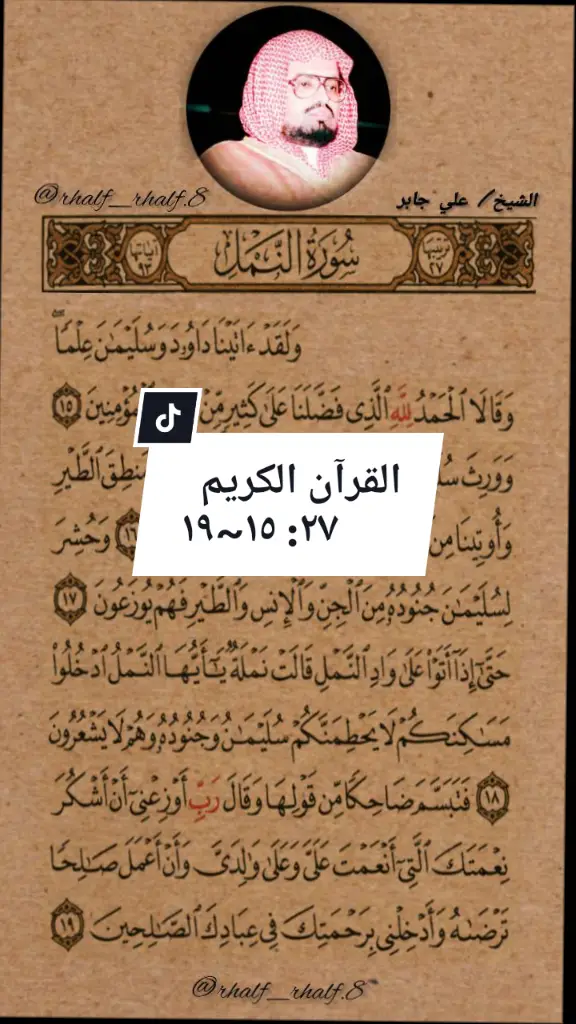 @rhalf_rhalf.8
الشيخ/ علي جابر
ترتيبها ٢٧
سُورَةُ النَّمْلِ
آياتها ٩٣
وَلَقَدْ ءَاتَيْنَا دَاوُۥدَ وَسُلَيْمَٰنَ عِلْمًا ۖ
وَقَالَا ٱلْحَمْدُ لِلَّهِ ٱلَّذِى فَضَّلَنَا عَلَىٰ كَثِيرٍ مِّنْ ٱلْمُؤْمِنِينَ ١٥
وَوَرِثَ مَنطِقَ ٱلطَّيْرِ
القرآن الكريم
٢٧: ١٥~١٩
وَأُوتِينَا مِن ١٦ وَحُشِرَ
لِسُلَيْمَٰنَ جُنُودُهُۥ مِنَ ٱلْجِنِّ وَٱلْإِنسِ وَٱلطَّيْرِ فَهُمْ يُوزَعُونَ ١٧
حَتَّىٰٓ إِذَآ أَتَوْا۟ عَلَىٰ وَادِ ٱلنَّمْلِ قَالَتْ نَمْلَةٌ يَٰٓأَيُّهَا ٱلنَّمْلُ ٱدْخُلُوا۟
مَسَٰكِنَكُمْ لَا يَحْطِمَنَّكُمْ سُلَيْمَٰنُ وَجُنُودُهُۥ وَهُمْ لَا يَشْعُرُونَ
١٨ فَتَبَسَّمَ ضَاحِكًا مِّن قَوْلِهَا وَقَالَ رَبِّ أَوْزِعْنِىٓ أَنْ أَشْكُرَ
نِعْمَتَكَ ٱلَّتِىٓ أَنْعَمْتَ عَلَىَّ وَعَلَىٰ وَٰلِدَىَّ وَأَنْ أَعْمَلَ صَٰلِحًا
تَرْضَىٰهُ وَأَدْخِلْنِى بِرَحْمَتِكَ فِى عِبَادِكَ ٱلصَّٰلِحِينَ ١٩
@rhalf_rhalf.8